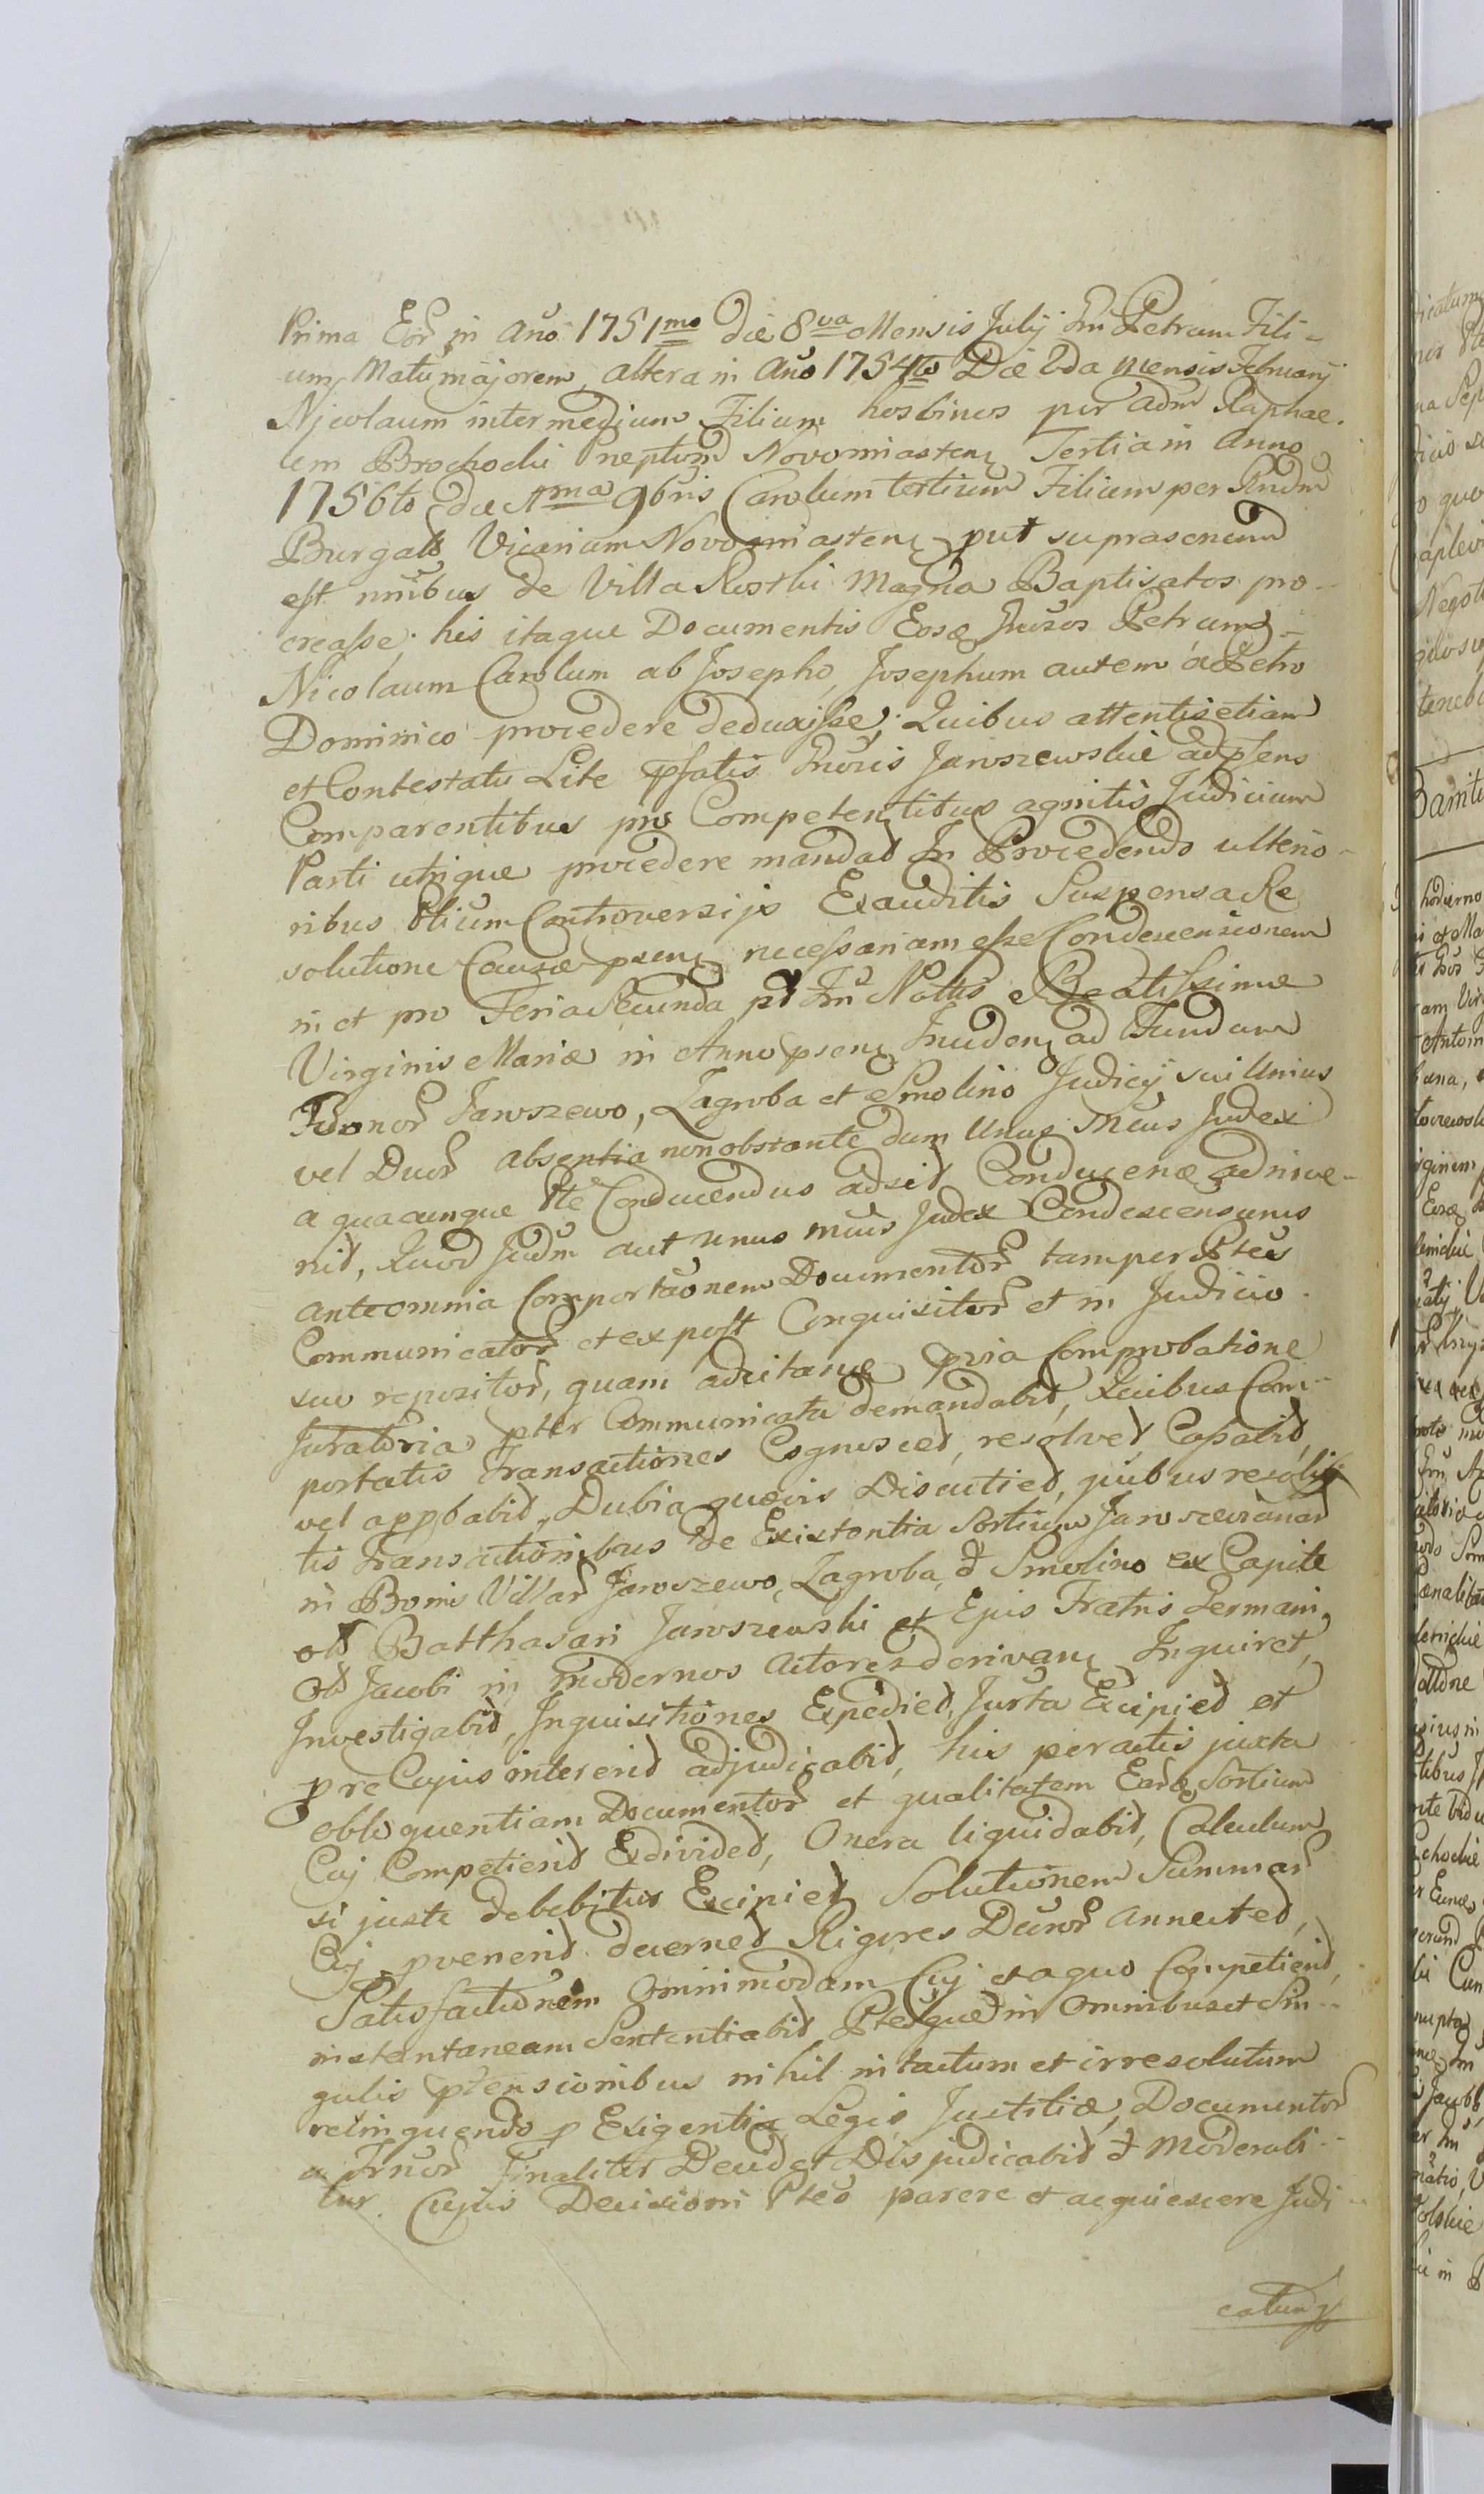 Prima Eor in Ano 1751mo die 8va Mensis Julij Im Petrum Fili-
um Natu majorem, altera in Ano 1754to Die 2da mensis Februarij
Nicolaum intermedium Filium hosbinos per adm Raphae-
lem Brochocki neptum Novomiasten Tertia in Anno
1756to die 9bris Carolum tertium Filium per Rndm
Burgall Vicarium Novomiasten, put suprascriptum
est omnibus de Villa Rostki Magna Baptisatos pro-
creasse; his itaque Documentis Eosq Petrum,
Nicolaum Carolum ab Josepho, Josephum autem a Petro
Dominico procedere deduxisse; Quibus attentis etiam
et Contestatu Lite pfatis Jaroszewskie ad psens
Comparentibus pro Competentibus agnitis Judicium
Parti utrique procedere mandat In Procedendo ulterio-
ribus Ptium Controversijs Exauditis Suspensa Re
solutione Causæ psen, necessariam esse Condescensionem
in et pro Feria Secunda pt Natis Beatissimæ
Virginis Mariæ in Anno psen Inciden ad Fundum
Jaroszewo, Zagroba et Smolino Judicij sui Unius
vel Duor absentia non obstante dum Unus Judex
a quacunque Pte Conducendus adsit Conducenæ adinve-
nit, Quod Judm aut unus Judex Condescensurus
ante omnia Comportaonem Documentor tam per Ptes
Communicator et ex post Conquisitor et in Judicio
suo repositor, quam adcitatæ pvia Comprobatione
Juratoria pter Communicata demandabit, Quibus Com-
portatis Transactiones Cognoscet, resolvet, Cassabit,
vel appbabit, Dubia quævis Discutiet, quibus resolu-
tis Transactionibus de Existentia Sortium Jaroszewianar
in Bonis Villar Jaroszewo, Zagroba, & Smolino ex Capite
olt Balthasari Jaroszewski et Ejus Fratris Germani,
Olt Jacobi in modernos Actores derivan Inquiret,
Investigabit, Inquisitiones Expediet, Jurta Excipiet et
p re Cujus intererit adjudicabit, his peractis juxta
obloquentiam Documentor et qualitatem Earq Sortium
Cuj Competierit Exdividet, Onera liquidabit, Calculum
si juste debebitur Excipiet Solutionem Summar
Cuj pvenerit decernet Rigores Annectet,
Satisfactionem Omnimodam Cuj et a quo Competierit,
instantaneam Sententiabit Ptesque in Omnibus et Sin-
gulis ptensionibus nihil intactum et irresolutum
relinquendo p Exigentia Legis Justitiæ, Documentor
Finaliter Decidet Disjudicabit & Moderabi-
tur. Cujus Decisioni Ptes parere et acquiescere Judi-